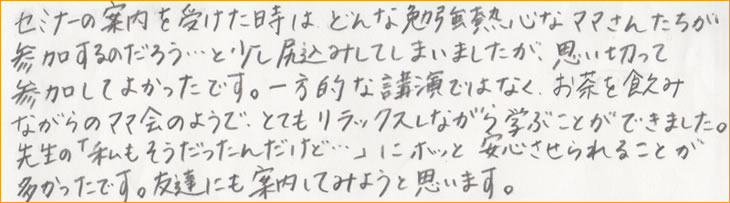 セミナーの案内を受けた時は、どんな勉強熱心なママさんたちが
参加するのだろう…と少し尻込みしてしまいましたが、思い切って
参加してよかったです。一方的な講演ではなく、お茶を飲み
ながらのママ会のようで、とてもリラックスしながら学ぶことができました。
先生の「私もそうだったんだけど…」にホッと安心させられることが
多かったです。友達にも案内してみようと思います。